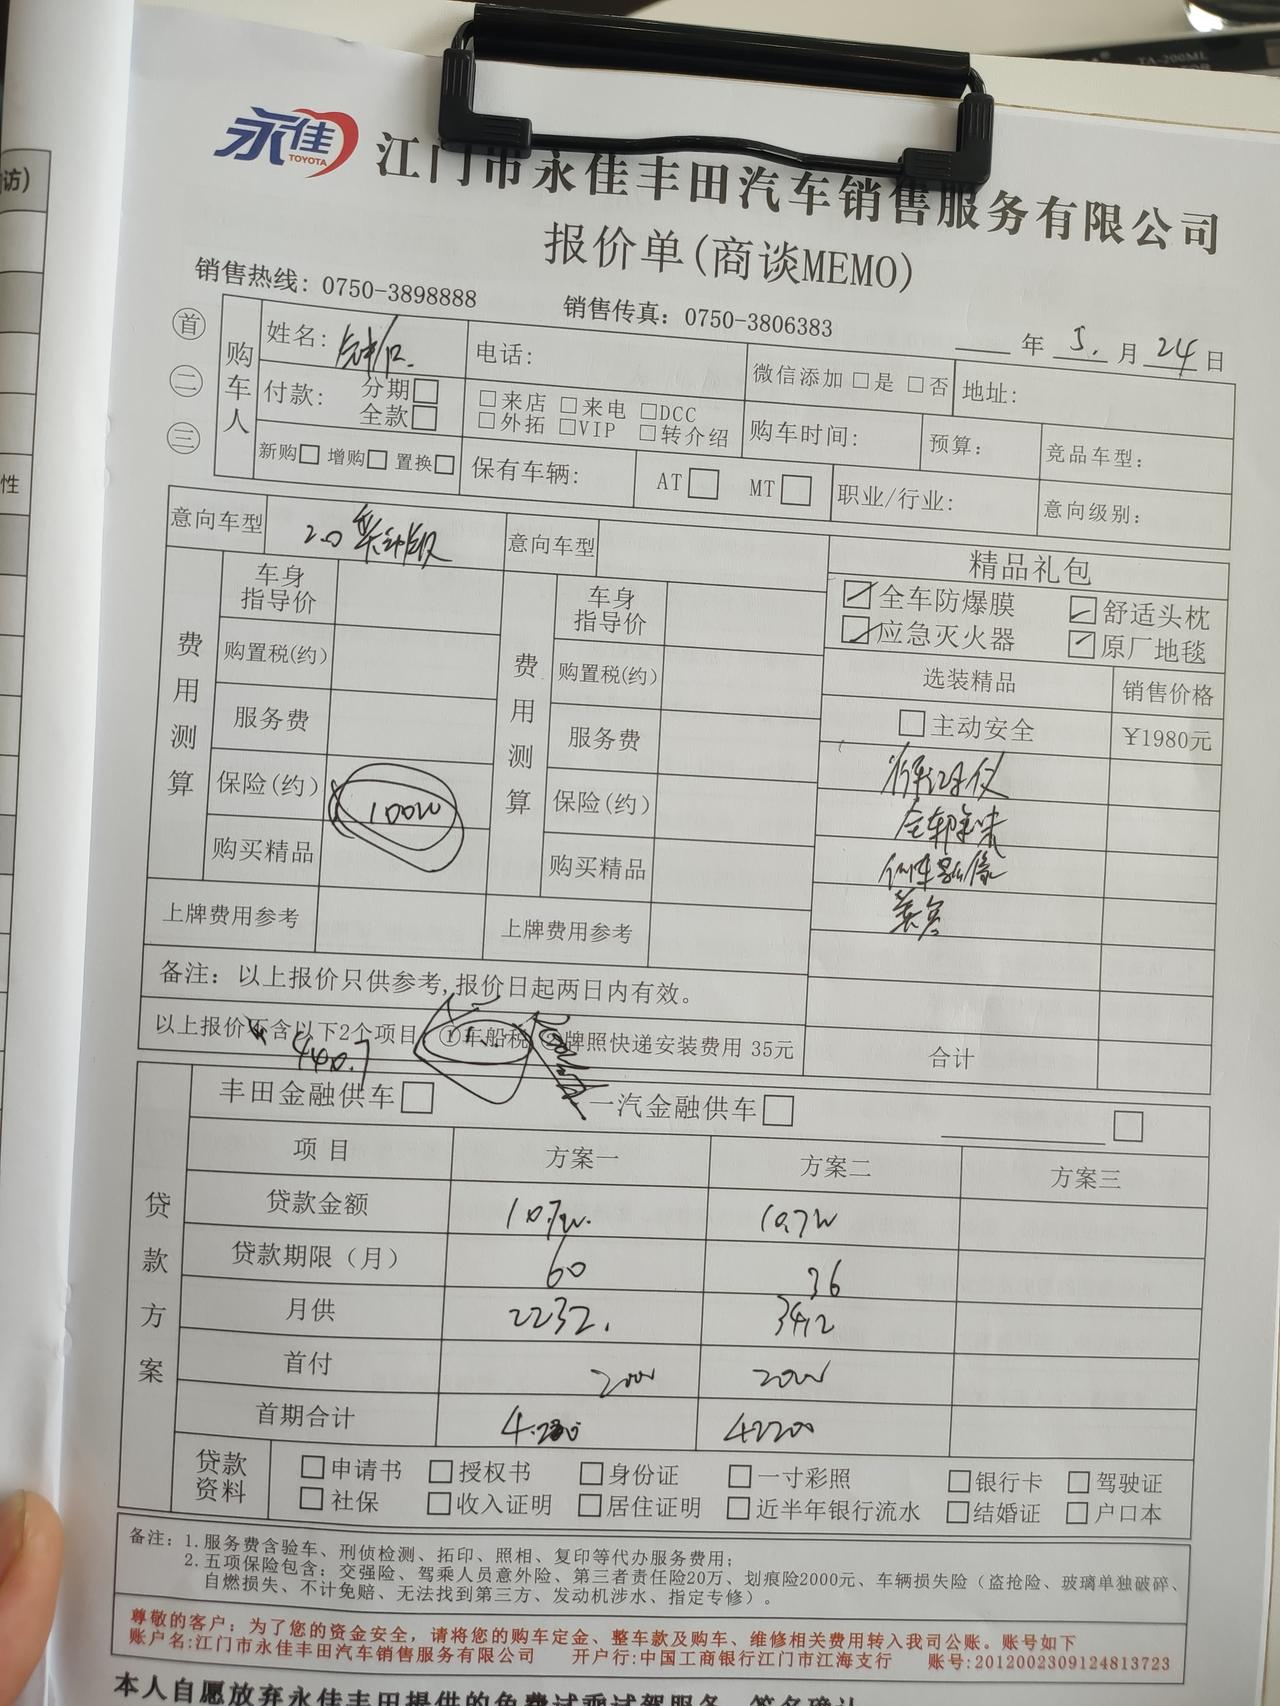 访)
性
永佳
TOYOTA
江门市永佳丰田汽车销售服务有限公司
报价单(商谈MEMO)
销售热线: 0750-3898888 销售传真: 0750-3806383
年 5. 月 24 日
首
二
三
购车人
姓名: 电话: 微信添加 □是 □否 地址:
付款: 分期□ 全款□
□来店 □来电 □DCC
□外拓 □VIP □转介绍
购车时间: 预算: 竞品车型:
新购□ 增购□ 置换□ 保有车辆: AT□ MT□ 职业/行业: 意向级别:
意向车型 2.0 意向车型 精品礼包
费用测算
车身指导价 车身指导价
购置税(约) 购置税(约)
服务费 服务费
保险(约) 保险(约)
购买精品 购买精品
上牌费用参考 上牌费用参考
全车防爆膜 舒适头枕
应急灭火器 原厂地毯
选装精品 销售价格
□主动安全 ¥1980元
行车记录仪
全车除味
倒车影像
合计
备注: 以上报价只供参考,报价日起两日内有效。
以上报价不含以下2个项目: ①车船税 ②牌照快递安装费用 35元
丰田金融供车□ 一汽金融供车□ □
贷款方案
项目 方案一 方案二 方案三
贷款金额 10.7w. 10.7w
贷款期限（月） 60 36
月供 2232. 3412
首付
首期合计 42200
贷款资料
□申请书 □授权书 □身份证 □一寸彩照 □银行卡 □驾驶证
□社保 □收入证明 □居住证明 □近半年银行流水 □结婚证 □户口本
备注: 1.服务费含验车、刑侦检测、拓印、照相、复印等代办服务费用;
2.五项保险包含: 交强险、驾乘人员意外险、第三者责任险20万、划痕险2000元、车辆损失险（盗抢险、玻璃单独破碎、
自燃损失、不计免赔、无法找到第三方、发动机涉水、指定专修）。
尊敬的客户: 为了您的资金安全，请将您的购车定金、整车款及购车、维修相关费用转入我司公账。账号如下
账户名:江门市永佳丰田汽车销售服务有限公司 开户行:中国工商银行江门市江海支行 账号:2012002309124813723
本人自愿放弃永佳丰田提供的免费试乘试驾服务，签名确认